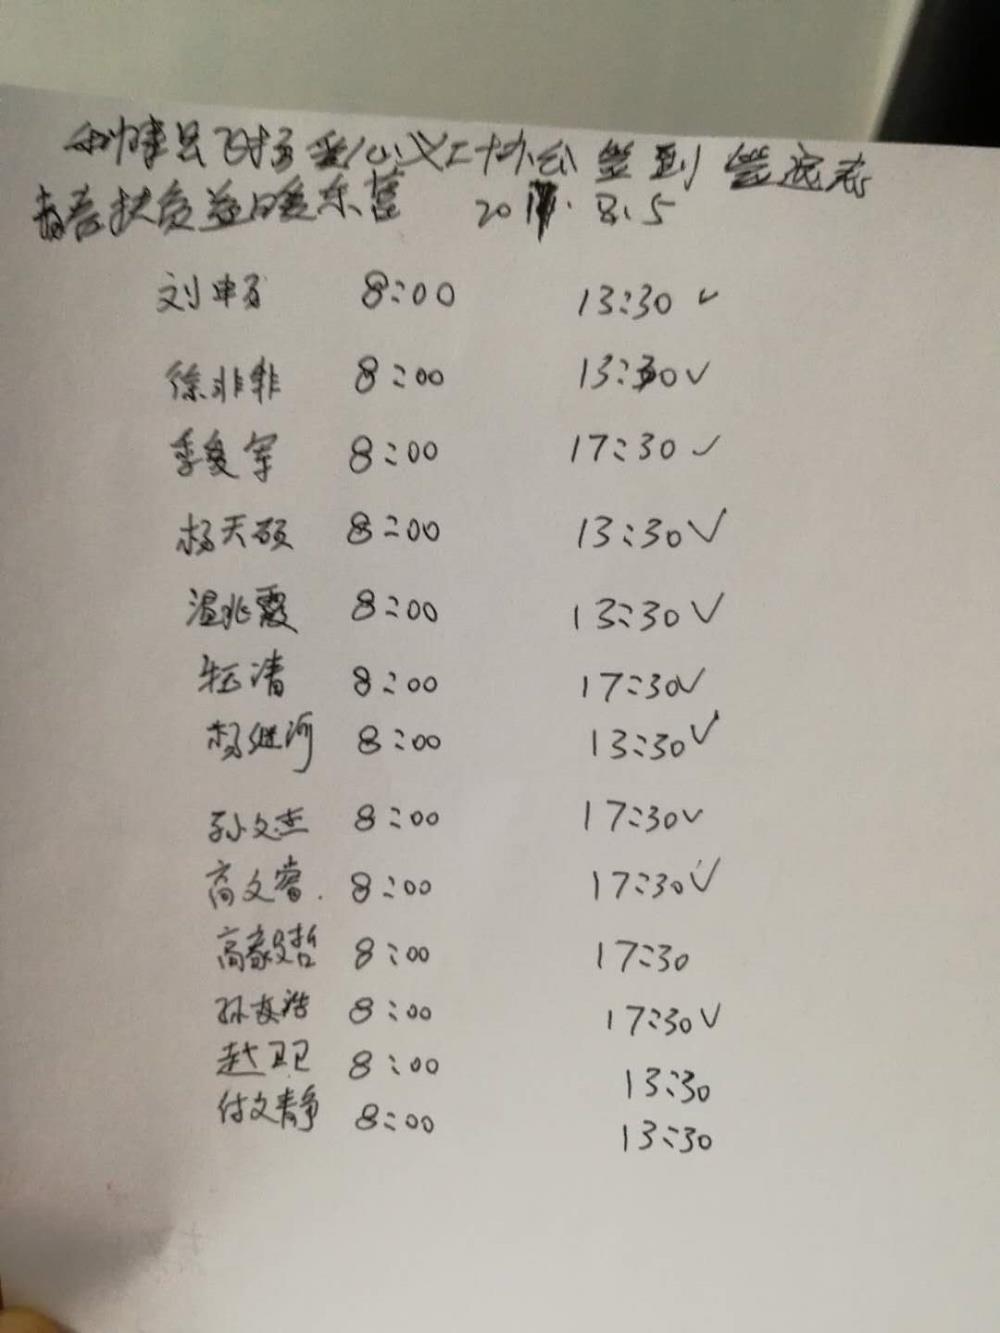 利津县飞扬爱心义工协会签到签退表
青春扶贫益暖东营 2017.8.5
刘申 8:00 13:30 ✓
徐非非 8:00 13:30 ✓
季 军 8:00 17:30 ✓
杨天硕 8:00 13:30 ✓
温兆霞 8:00 13:30 ✓
清 8:00 17:30 ✓
杨继河 8:00 13:30 ✓
孙文杰 8:00 17:30 ✓
高文睿. 8:00 17:30 ✓
高 哲 8:00 17:30
孙 浩 8:00 17:30 ✓
赵卫 8:00 13:30
付文静 8:00 13:30